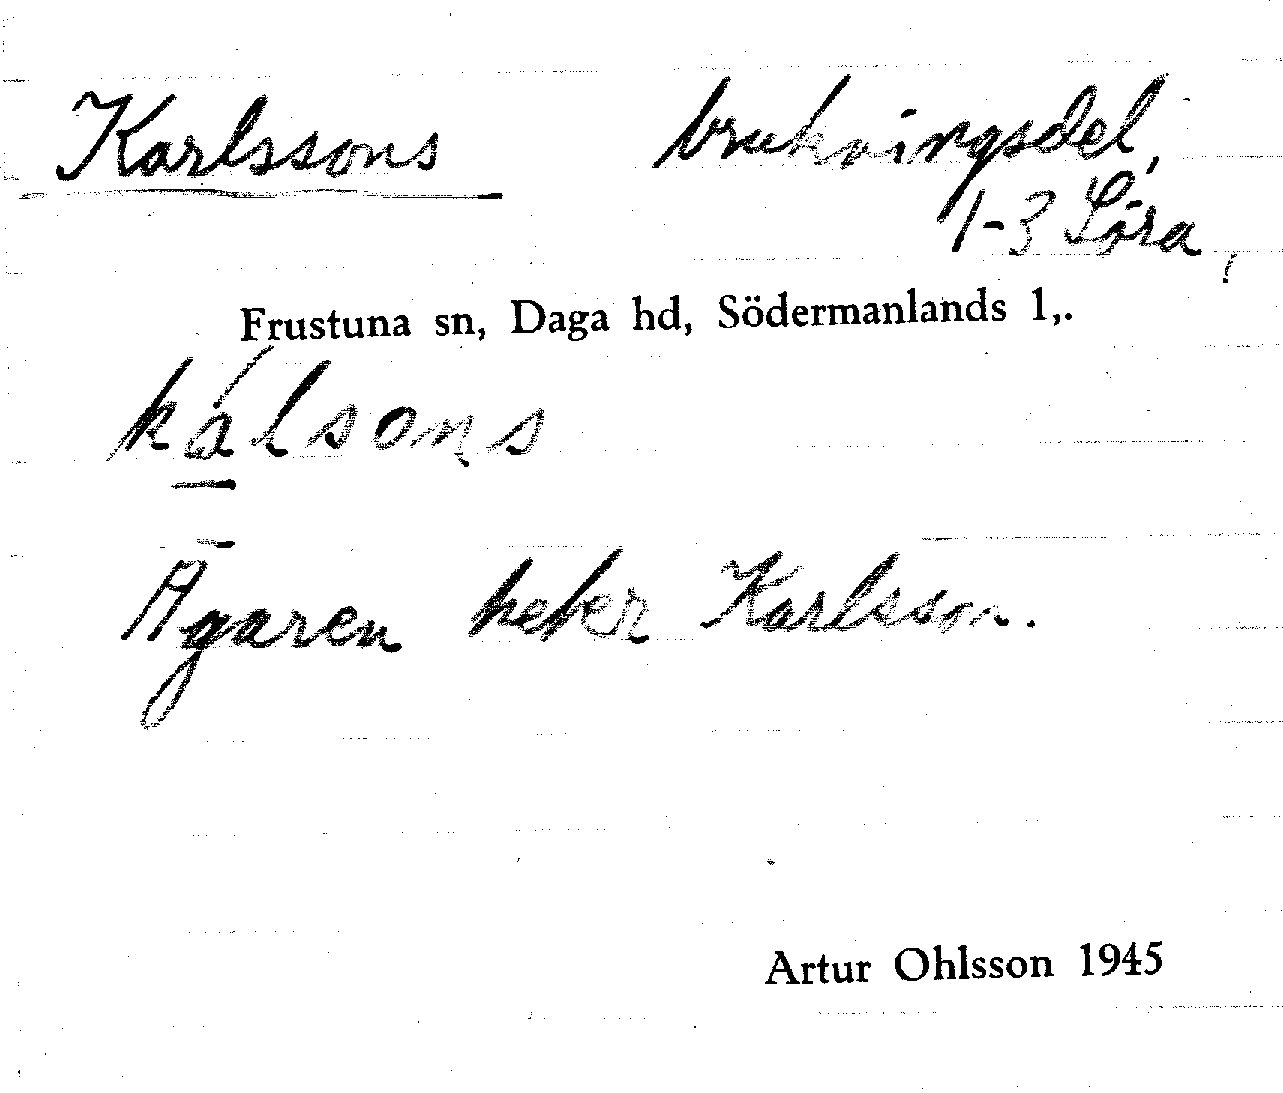 Karlssons brukningsdel,
1-3 Löra,
Frustuna sn, Daga hd, Södermanlands l,.
kálsons
Ägaren heter Karlsson.
Artur Ohlsson 1945